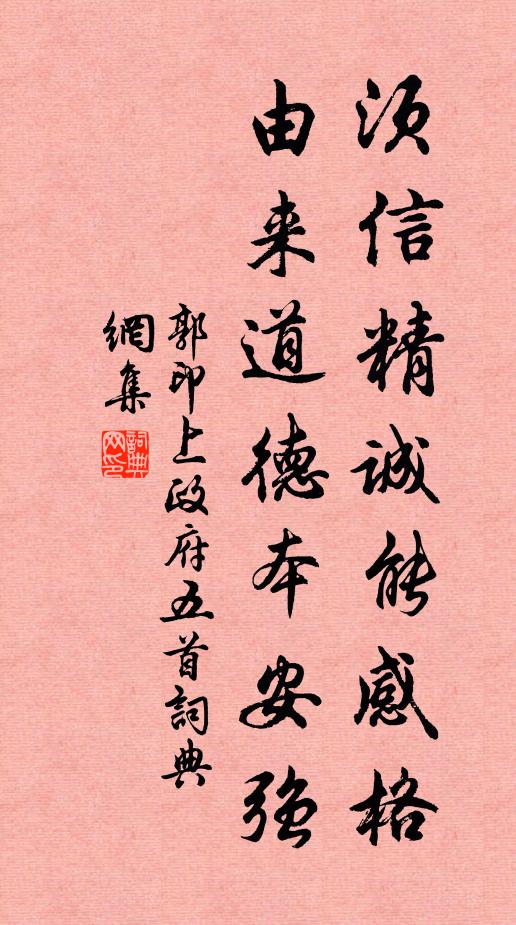 须信精诚能感格
由来道德本安强
郭印上政府五首詞典
網集
詞典
网印